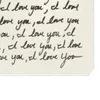 I love you, I love
you, I love you, I love
you, I love you, I
I love you, I love
, I love you, I love
I love you, I love You